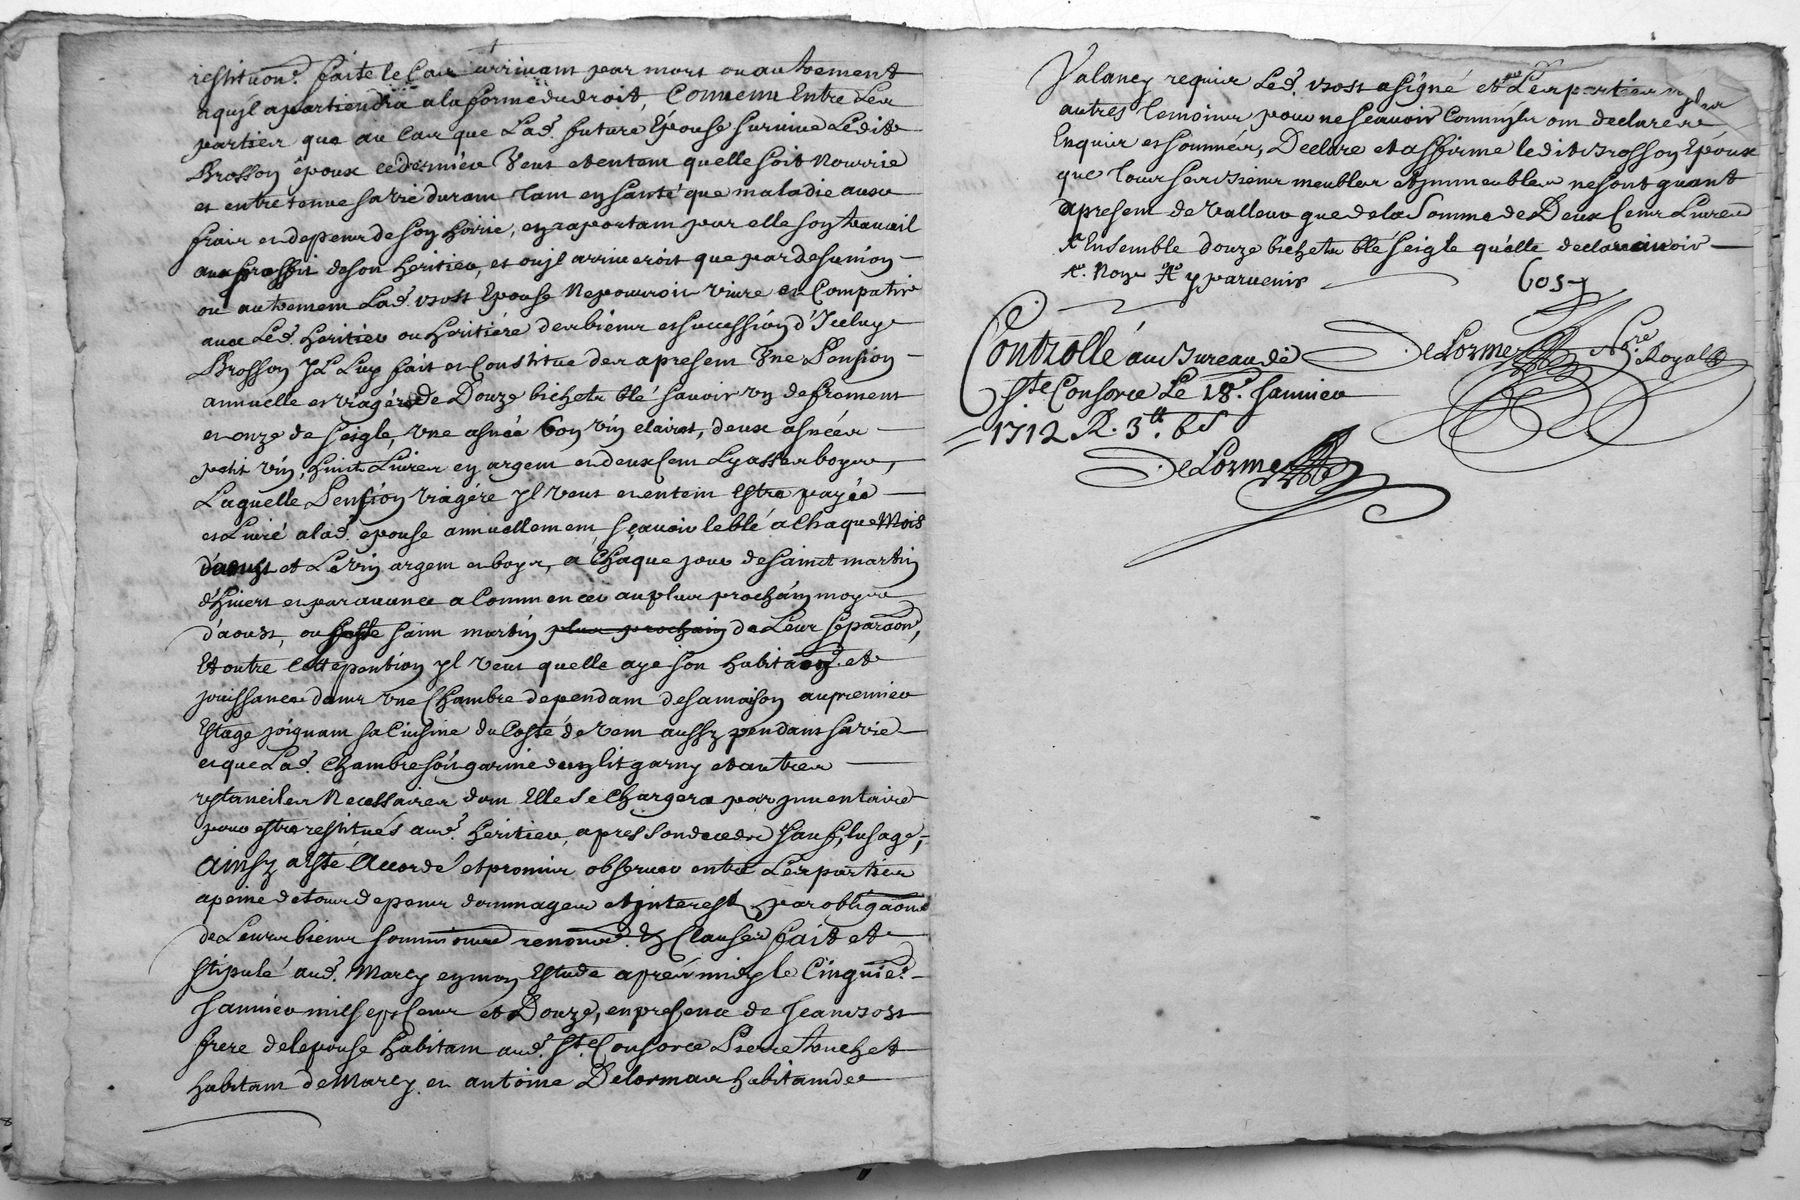 restituon.ᵈ faite le Cas arrivant par mort ou autrement
a quy Il apartiendra a la forme du droit, Convenu Entre Les
parties que au Cas que Lad. future Epouse survive Ledit
Brosson époux ce dernier Veut et entent quelle soit Nourrie
et entretenue sa vie durant Tant en santé que maladie aux
frais et depens de son hoirie, en raportant par elle son travail
au proffit de son heritier, et ou jl arriveroit que par desunion
ou autrement Lad. vost Epouse Ne pouvroit vivre et Compatir
avec Led. heritier ou heritiére des biens et succession d'Iceluy
Brosson Jl Luy fait et Constitue des apresent Vne Pension
annuelle et viagére de Douze bichets blé savoir vn de froment
et onze de seigle, vne asnée bon vin clairet, deux asnées
petit vin, huit Livres en argent et deux Cent Lyasses boyre,
Laquelle Pension viagére yl veut et entent Estre payée
et Livré a lad. epouse annuellement, sçavoir le blé a Chaque Mois
d'aoust et Le vin argent et boyr, a Chaque jour de saint martin
d'hivert et par avance a Commencer au plus prochain moys
d'aoust, ou feste saint martin plus prochain de Leur séparaon,
Et outre Cette pention yl veut quelle aye son habitaon. et
jouissance dans vne Chambre dependant de sa maison au premier
Estage joignant sa Cuisine du Costé de vent aussy pendant sa vie
et que Lad. Chambre soit garnie d'un lit garny et autres
vstanciles Necessaires dont Elle se Chargera par jnventaire
pour estre restitués aud. heritier, apres son decedz sauf l'usage,
Ainsy a Esté Accordé et promis observer entre Les parties
a peine de tous depens dommages et jnterest par obligaons
de Leurs biens sommions renonce. Et Clauses fait et
stipulé aud. Marcy en mon Estude aprés midy le Cinquie.
Janvier mil sept Cens et Douze, en presence de Jean vost
frere de lepouse habitant aud. Ste. Consorce Pierre touchet
habitant de Marcy. et antoine Delormas habitant de
Valancy requis Led. vost a signé et non Les parties ny les
autres temoins pour ne scavoir Comm'ils ont declaré de
Enquis et sommés, Declare et affirme ledit Brosson Epoux
que tous ses biens meubles et jmmeubles ne sont quant
apresent de valleur que de la somme de Deux Cens Livres
Ensemble douze bichets blé seigle qu'elle declare avoir
yparvenir
Controllé au Bureau de
Ste. Consorce Le 18. Janvier
1712 R. 3ᵗᵗ. 6s
DeLorme
DeLorme Nre. Royal